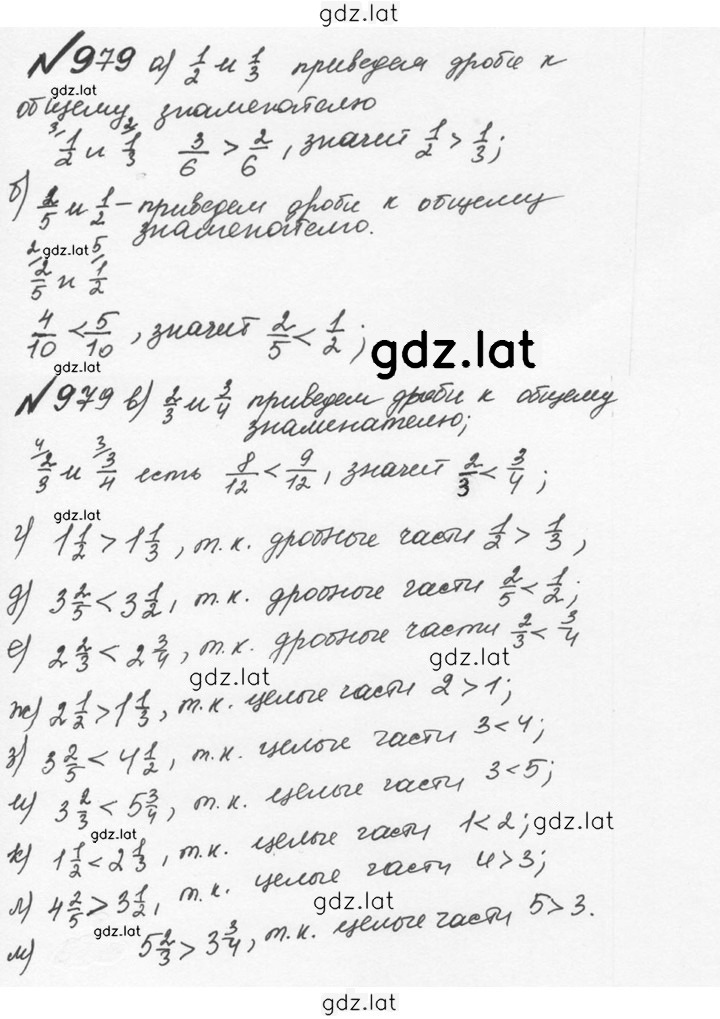 gdz.lat
№979 а) 1/2 и 1/3 приведем дроби к
gdz.lat
общему знаменателю
3/ 1/2 и 2/ 1/3 3/6 > 2/6, значит 1/2 > 1/3;
б) 2/5 и 1/2 – приведем дроби к общему
знаменателю.
gdz.lat
2/ 2/5 и 5/ 1/2
4/10 < 5/10, значит 2/5 < 1/2;
gdz.lat
gdz.lat
№979 в) 2/3 и 3/4 приведем дроби к общему
знаменателю;
4/ 2/3 и 3/ 3/4 есть 8/12 < 9/12, значит 2/3 < 3/4;
gdz.lat
г) 1 1/2 > 1 1/3, т.к. дробные части 1/2 > 1/3,
д) 3 2/5 < 3 1/2, т.к. дробные части 2/5 < 1/2;
е) 2 2/3 < 2 3/4, т.к. дробные части 2/3 < 3/4
gdz.lat
gdz.lat
ж) 2 1/2 > 1 1/3, т.к. целые части 2 > 1;
з) 3 2/5 < 4 1/2, т.к. целые части 3 < 4;
и) 3 2/3 < 5 3/4, т.к. целые части 3 < 5;
gdz.lat
gdz.lat
к) 1 1/2 < 2 1/3, т.к. целые части 1 < 2;
л) 4 2/5 > 3 1/2, т.к. целые части 4 > 3;
gdz.lat
gdz.lat
м) 5 2/3 > 3 3/4, т.к. целые части 5 > 3.
gdz.lat